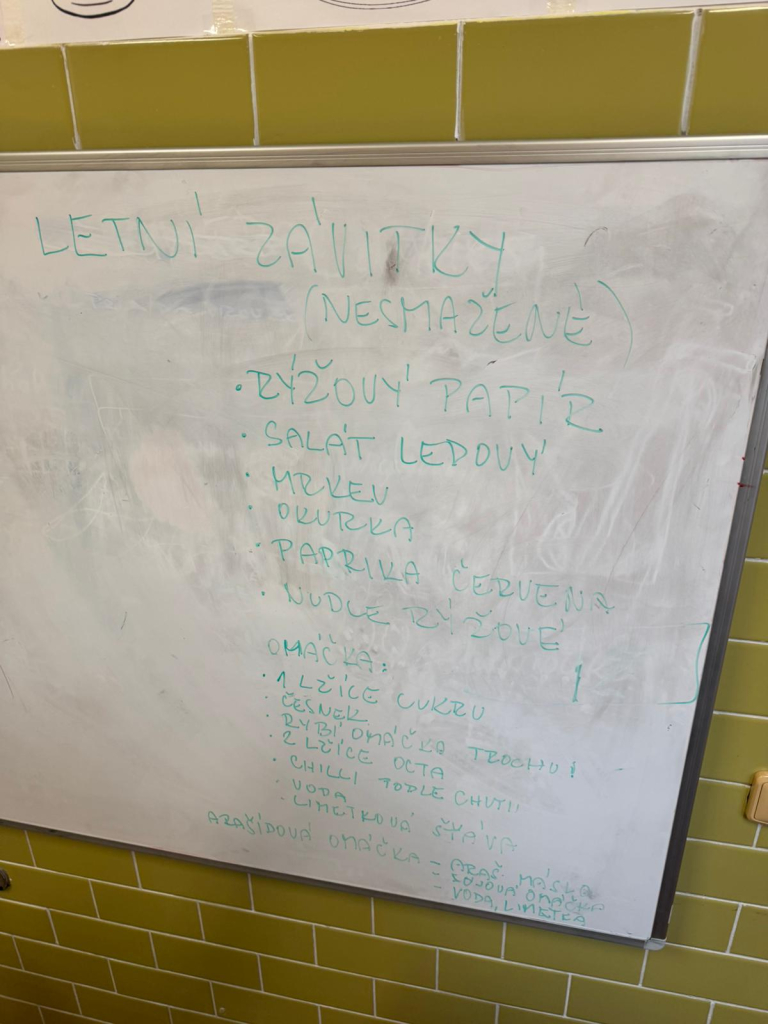 LETNÍ ZÁVITKY
(NESMAŽENÉ)
• RÝŽOVÝ PAPÍR
• SALÁT LEDOVÝ
• MRKEV
• OKURKA
• PAPRIKA ČERVENÁ
• NUDLE RÝŽOVÉ
OMÁČKA:
• 1 LŽÍCE CUKRU
• ČESNEK
• RYBÍ OMÁČKA TROCHU!
• 2 LŽÍCE OCTA
• CHILLI PODLE CHUTI!
• VODA
• LIMETKOVÁ ŠŤÁVA
ARAŠÍDOVÁ OMÁČKA - ARAŠ. MÁSLO
- SOJOVÁ OMÁČKA
- VODA, LIMETKA